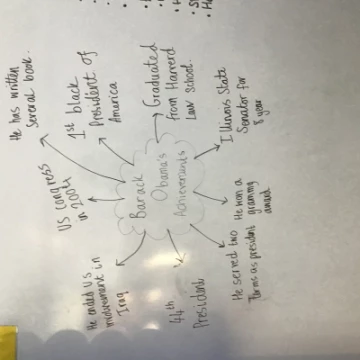 Barack
Obama's
Achievements
He has written
Several book.
1st black
President of
America
Graduated
from Harverd
Law School.
Illinois State
Senator for
8 year
He won a
grammy
award
He served two
Terms as president
44th
President
He ended US
in
Iraq
US congress
in 2004